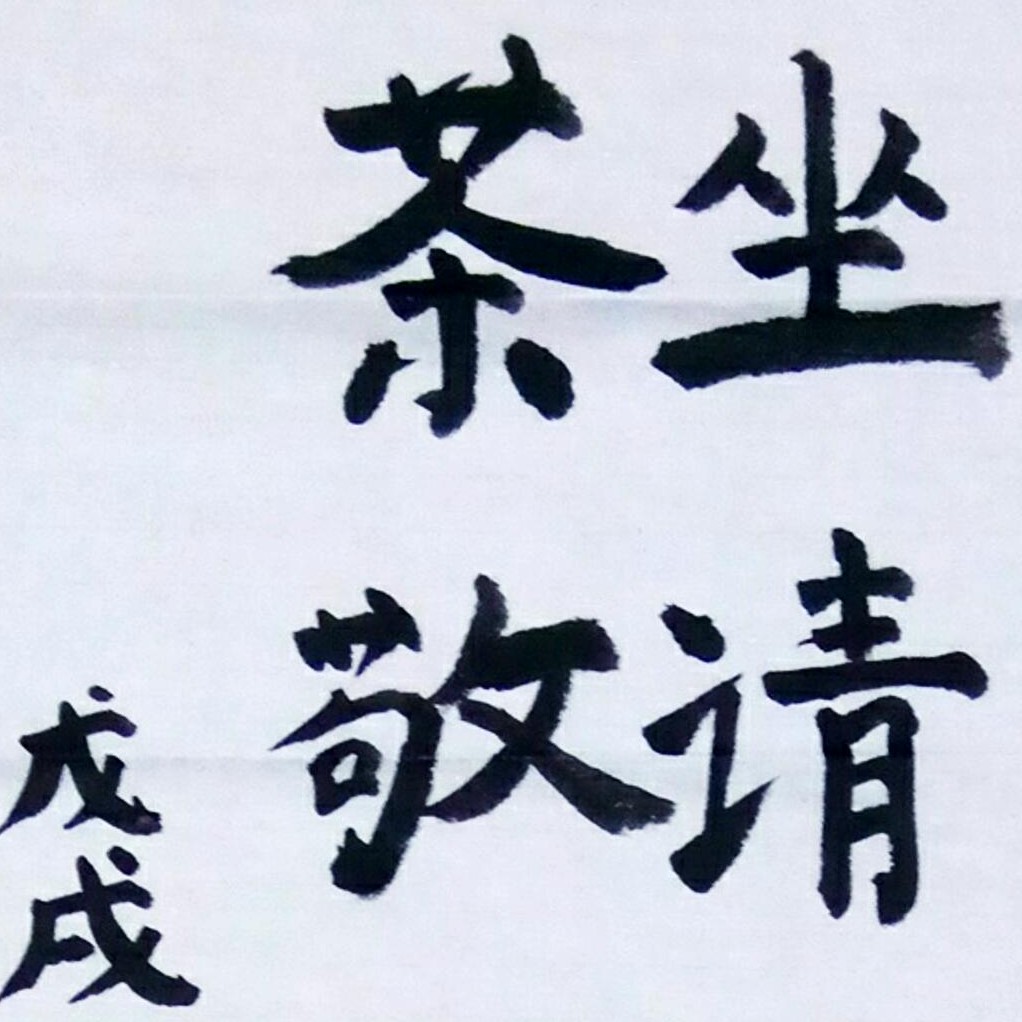 坐请
茶敬
戊戌